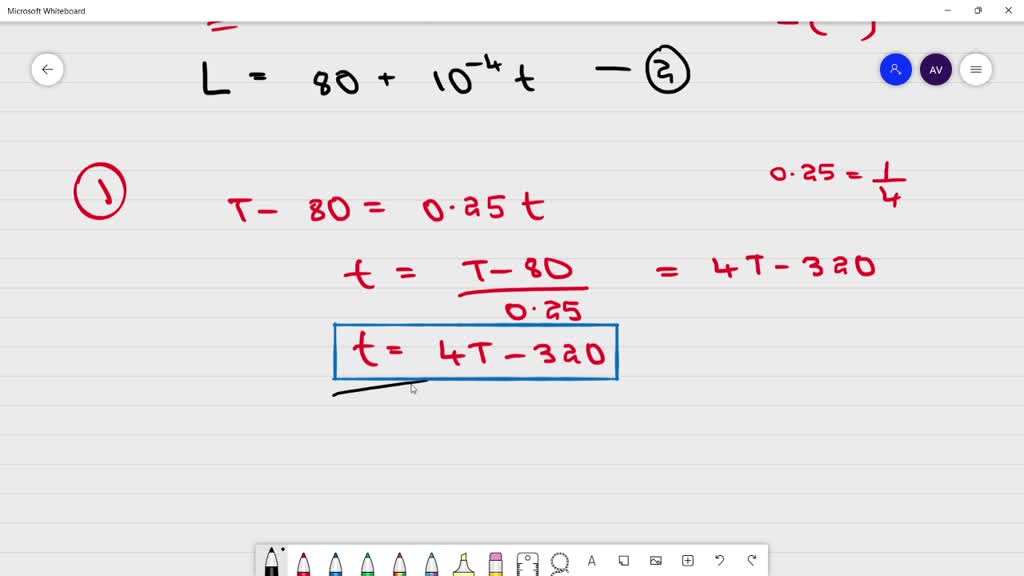 Microsoft Whiteboard
L = 80 + 10⁻⁴ t — ②
AV
①
0.25 = 1/4
T - 80 = 0.25 t
t = T - 80 / 0.25 = 4T - 320
t = 4T - 320
A